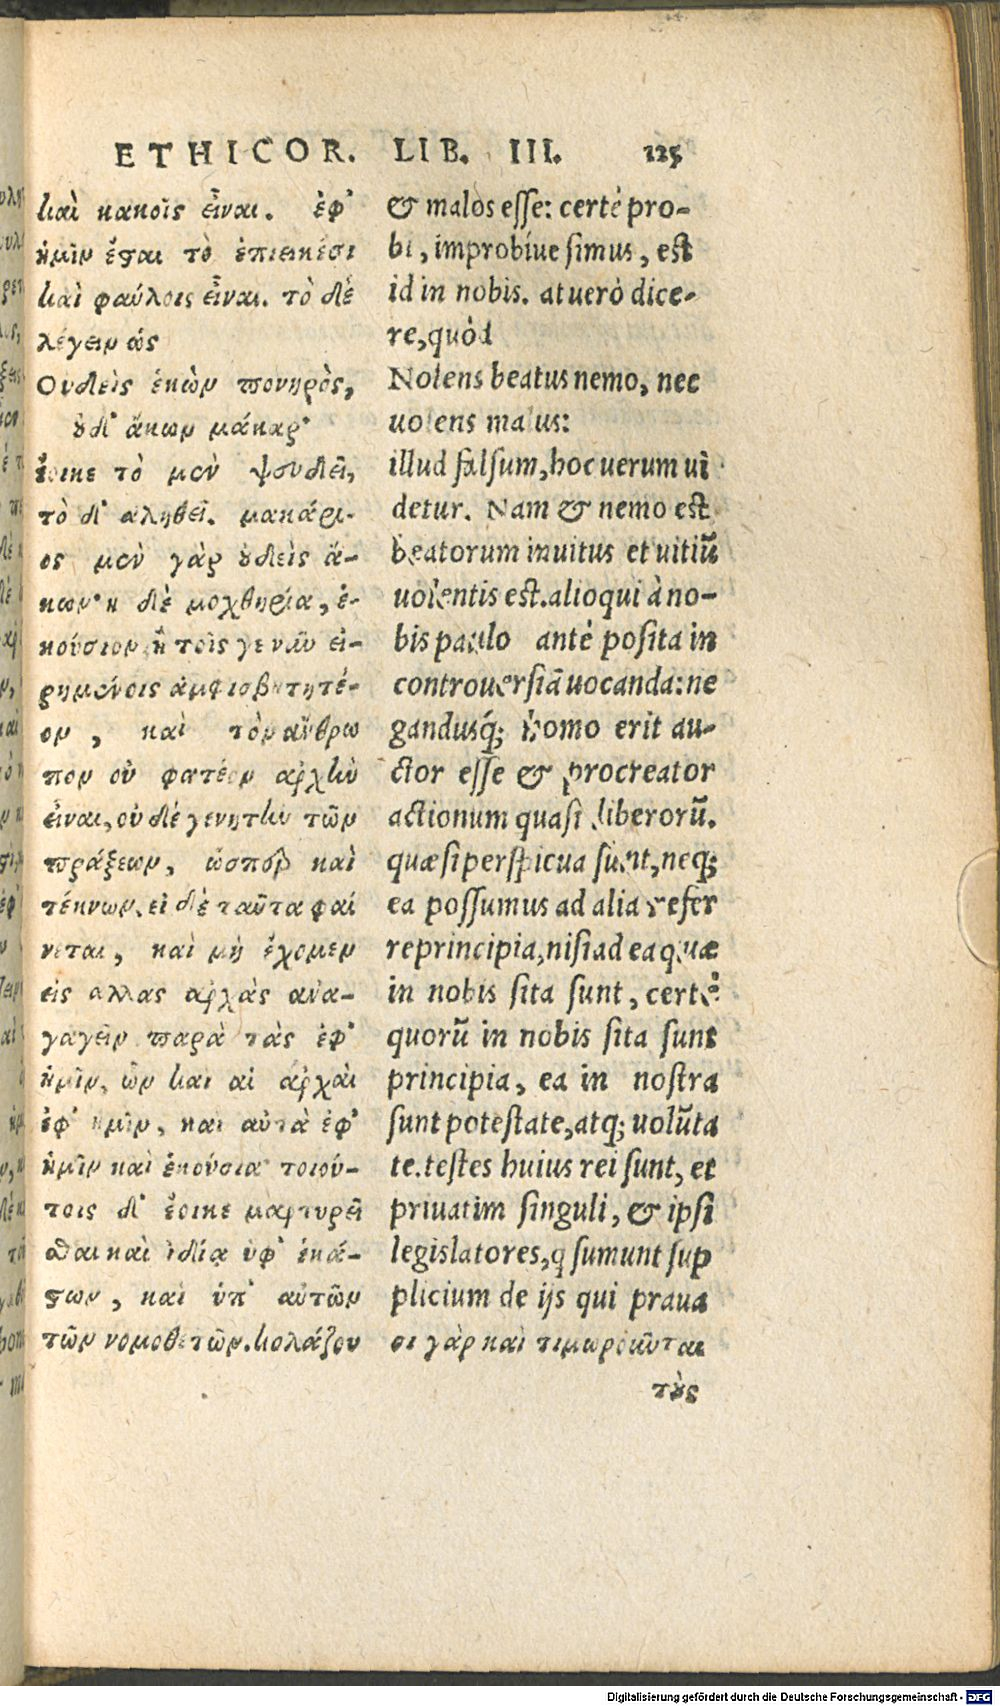 ETHICOR. LIB. III. 125
καὶ κακοῖς εἶναι. ἐφ᾽
ἡμῖν ἔσται τὸ ἐπιεικέσι
καὶ φαύλοις εἶναι. τὸ δὲ
λέγειν ὡς
Οὐδεὶς ἑκὼν πονηρὸς,
οὐδ᾽ ἄκων μάκαρ·
ἔοικε τὸ μὲν ψευδεῖ,
τὸ δ᾽ ἀληθεῖ. μακάρι-
ος μὲν γὰρ οὐδεὶς ἄ-
κων· ἡ δὲ μοχθηρία, ἑ-
κούσιον ἢ τοῖς γε νῦν εἰ-
ρημένοις ἀμφισβητητέ-
ον, καὶ τὸν ἄνθρω
πον οὐ φατέον ἀρχὴν
εἶναι, οὐδὲ γενητὴν τῶν
πράξεων, ὥσπερ καὶ
τέκνων. εἰ δὲ ταῦτα φαί
νεται, καὶ μὴ ἔχομεν
εἰς ἄλλας ἀρχὰς ἀνα-
γαγεῖν παρὰ τὰς ἐφ᾽
ἡμῖν, ὧν καὶ αἱ ἀρχαὶ
ἐφ᾽ ἡμῖν, καὶ αὐτὰ ἐφ᾽
ἡμῖν καὶ ἑκούσια τοιού-
τοις δ᾽ ἔοικε μαρτυρεῖ
σθαι καὶ ἰδίᾳ ὑφ᾽ ἑκά-
στων, καὶ ὑπ᾽ αὐτῶν
τῶν νομοθετῶν. κολάζου
& malos esse: certè pro-
bi, improbíue simus, est
id in nobis. at uerò dice-
re, quòd
Nolens beatus nemo, nec
uolens malus:
illud falsum, hoc uerum ui
detur. Nam & nemo est
beatorum inuitus et uitiũ
uolentis est. alioqui à no-
bis paulo antè posita in
controuersiã uocanda: ne
gandusq́; homo erit au-
ctor esse & procreator
actionum quasi liberorũ.
quæ si perspicua sunt, neq;
ea possumus ad alia refer
re principia, nisi ad ea quæ
in nobis sita sunt, certè
quorũ in nobis sita sunt
principia, ea in nostra
sunt potestate, atq; uolũta
te. testes huius rei sunt, et
priuatim singuli, & ipsi
legislatores, q sumunt sup
plicium de ijs qui praua
σι γὰρ καὶ τιμωροῦνται
τοὺς
Digitalisierung gefördert durch die Deutsche Forschungsgemeinschaft - DFG